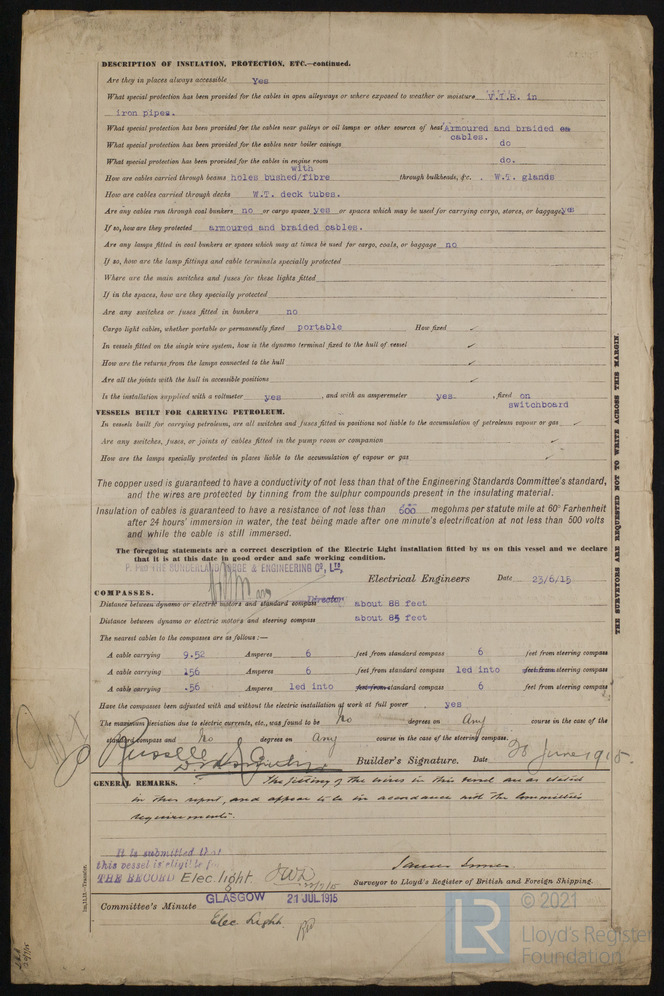 DESCRIPTION OF INSULATION, PROTECTION, ETC.—continued.
Are they in places always accessible Yes
What special protection has been provided for the cables in open alleyways or where exposed to weather or moisture V.I.R. in
iron pipes.
What special protection has been provided for the cables near galleys or oil lamps or other sources of heat Armoured and braided
cables.
What special protection has been provided for the cables near boiler casings do
What special protection has been provided for the cables in engine room do.
with
How are cables carried through beams holes bushed/fibre through bulkheads, &c. W.T. glands
How are cables carried through decks W.T. deck tubes.
Are any cables run through coal bunkers no or cargo spaces yes or spaces which may be used for carrying cargo, stores, or baggage yes
If so, how are they protected armoured and braided cables.
Are any lamps fitted in coal bunkers or spaces which may at times be used for cargo, coals, or baggage no
If so, how are the lamp fittings and cable terminals specially protected
Where are the main switches and fuses for these lights fitted
If in the spaces, how are they specially protected
Are any switches or fuses fitted in bunkers no
Cargo light cables, whether portable or permanently fixed portable How fixed ✓
In vessels fitted on the single wire system, how is the dynamo terminal fixed to the hull of vessel ✓
How are the returns from the lamps connected to the hull ✓
Are all the joints with the hull in accessible positions ✓
Is the installation supplied with a voltmeter yes , and with an amperemeter yes , fixed on
switchboard
VESSELS BUILT FOR CARRYING PETROLEUM.
In vessels built for carrying petroleum, are all switches and fuses fitted in positions not liable to the accumulation of petroleum vapour or gas ✓
Are any switches, fuses, or joints of cables fitted in the pump room or companion ✓
How are the lamps specially protected in places liable to the accumulation of vapour or gas ✓
The copper used is guaranteed to have a conductivity of not less than that of the Engineering Standards Committee's standard,
and the wires are protected by tinning from the sulphur compounds present in the insulating material.
Insulation of cables is guaranteed to have a resistance of not less than 600 megohms per statute mile at 60° Farhenheit
after 24 hours' immersion in water, the test being made after one minute's electrification at not less than 500 volts
and while the cable is still immersed.
The foregoing statements are a correct description of the Electric Light installation fitted by us on this vessel and we declare
that it is at this date in good order and safe working condition.
P. Pro THE SUNDERLAND FORGE & ENGINEERING Co, LTD,
Electrical Engineers Date 23/6/15
Director
COMPASSES.
Distance between dynamo or electric motors and standard compass about 88 feet
Distance between dynamo or electric motors and steering compass about 85 feet
The nearest cables to the compasses are as follows:—
A cable carrying 9.52 Amperes 6 feet from standard compass 6 feet from steering compass
A cable carrying .56 Amperes 6 feet from standard compass led into feet from steering compass
A cable carrying .56 Amperes led into feet from standard compass 6 feet from steering compass
Have the compasses been adjusted with and without the electric installation at work at full power yes
The maximum deviation due to electric currents, etc., was found to be No degrees on Any course in the case of the
standard compass and No degrees on any course in the case of the steering compass.
Russell & Co
Builder's Signature. Date 30 June 1915.
GENERAL REMARKS. The fitting of the wires in this vessel are as stated
in this report, and appear to be in accordance with the Committee's
requirements.
It is submitted that
this vessel is eligible for
THE RECORD Elec. light JWD 20/7/15
James Innes.
Surveyor to Lloyd's Register of British and Foreign Shipping.
GLASGOW 21 JUL 1915
Committee's Minute
Elec Light.
THE SURVEYORS ARE REQUESTED NOT TO WRITE ACROSS THIS MARGIN.
LR © 2021
Lloyd's Register
Foundation